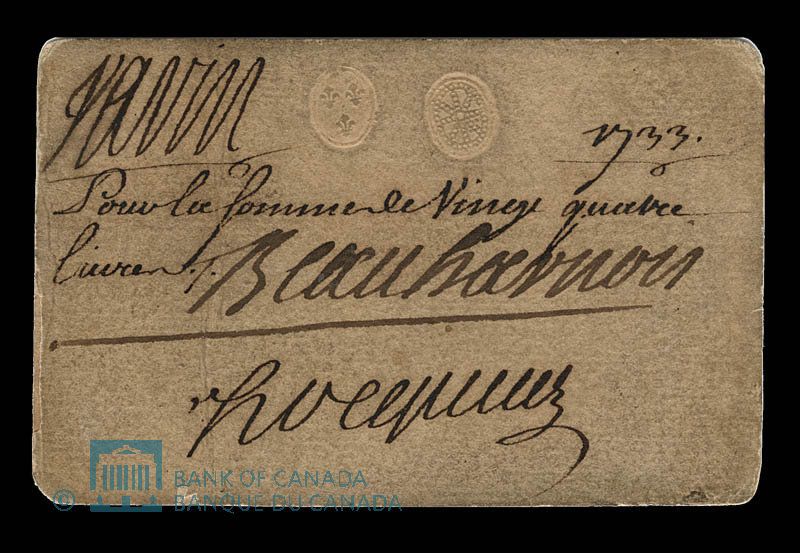 Varin
1733.
Pour la somme de Vingt quatre
livres ./.
Beauharnois
hocquart
© BANK OF CANADA
BANQUE DU CANADA